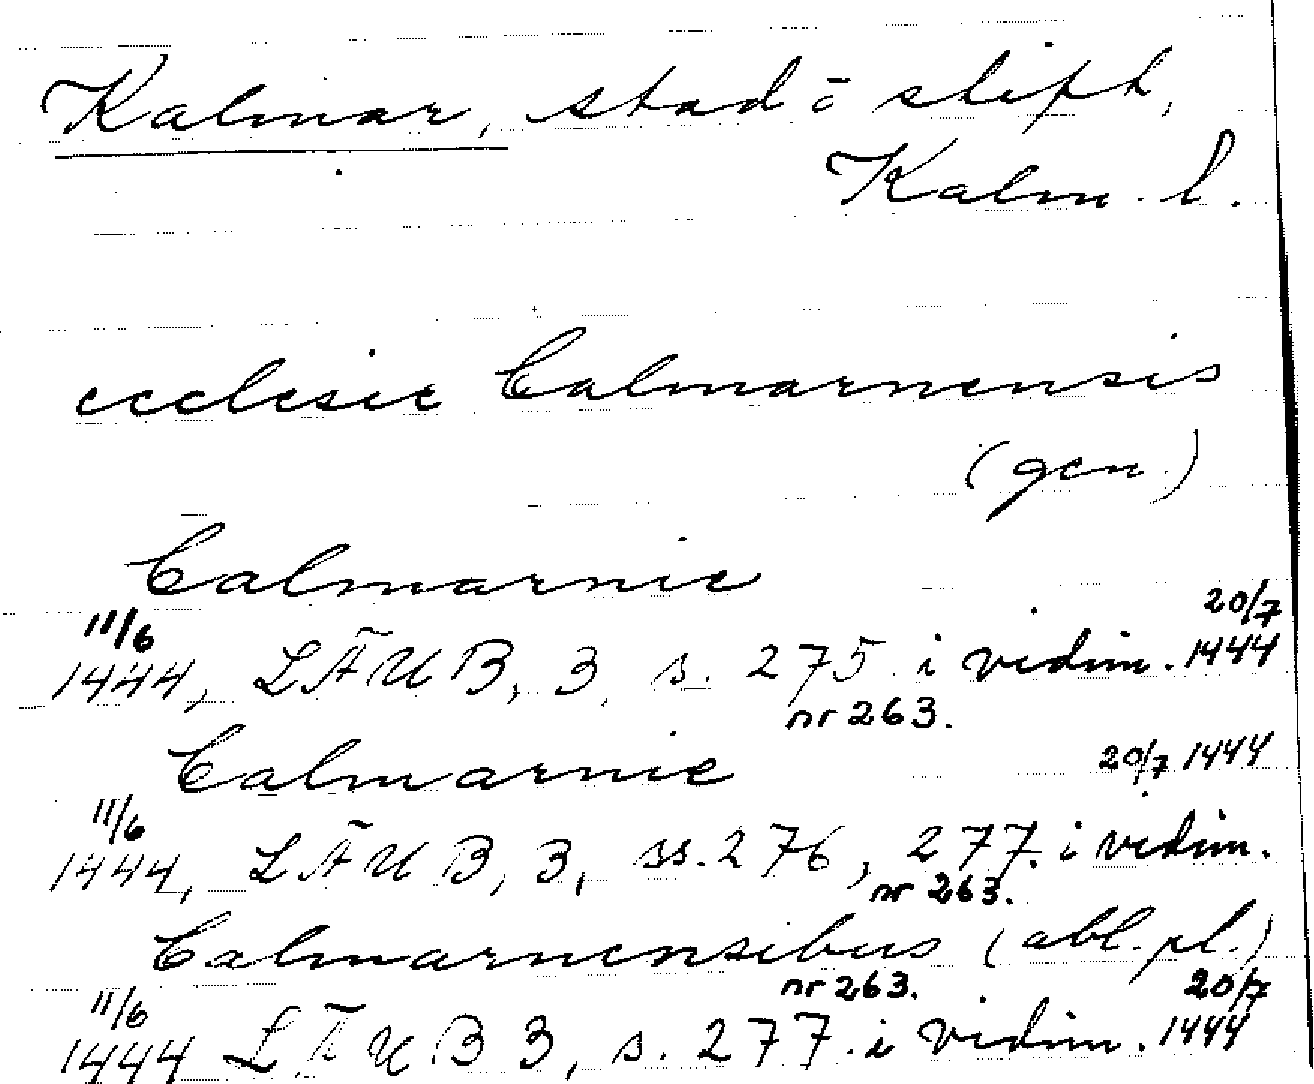 Kalmar, stad o stift,
Kalm. l.
ecclesie Calmarnensis
(gen.)
Calmarnie
11/6 1444, LÄUB, 3, s. 275 i vidim. 20/7 1444
nr 263.
Calmarnie 20/7 1444
11/6 1444, LÄUB, 3, ss. 276, 277. i vidim.
nr 263.
Calmarnensibus (abl. pl.)
nr 263. 20/7
11/6 1444 LÄUB 3, s. 277. i vidim. 1444